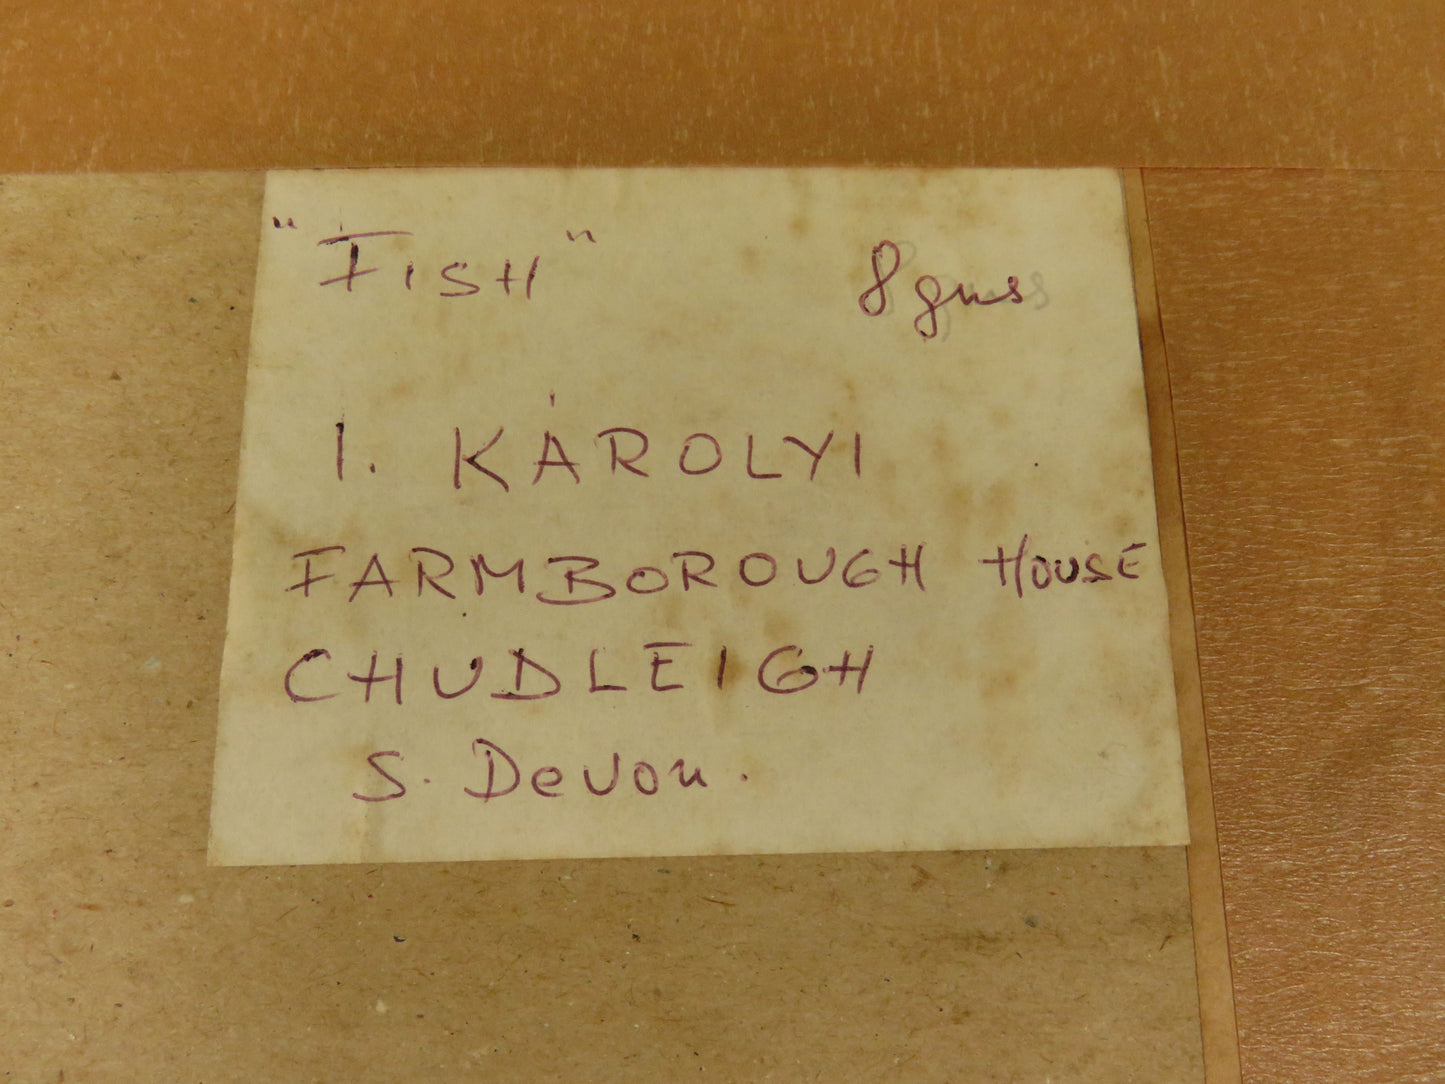 "FISH" 8 gns
I. KÁROLYI
FARMBOROUGH HOUSE
CHUDLEIGH
S. Devon.